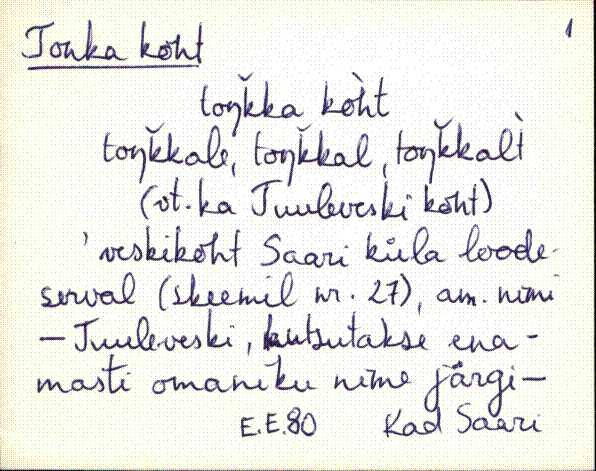 Tonka koht 1
toŋk̆ka kòht
toŋk̆kale, toŋk̆kal, toŋk̆kalt̀
(vt. ka Tuuleveski koht)
'veskikoht Saari küla loode-
serval (skeemil nr. 27), am. nimi
– Tuuleveski, kutsutakse ena-
masti omaniku nime järgi –
E.E.80 Kad Saari